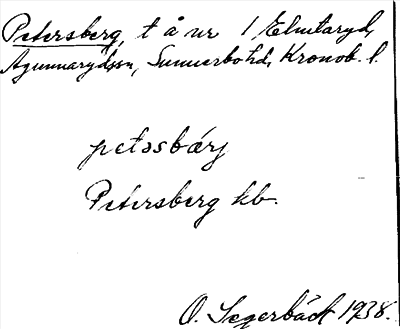 Petersberg, t å nr 1 Elmtaryd,
Agunnarydssn, Sunnerbohd, Kronob. l.
petəsbärj
Petersberg kb.
O. Segerbäck 1938.